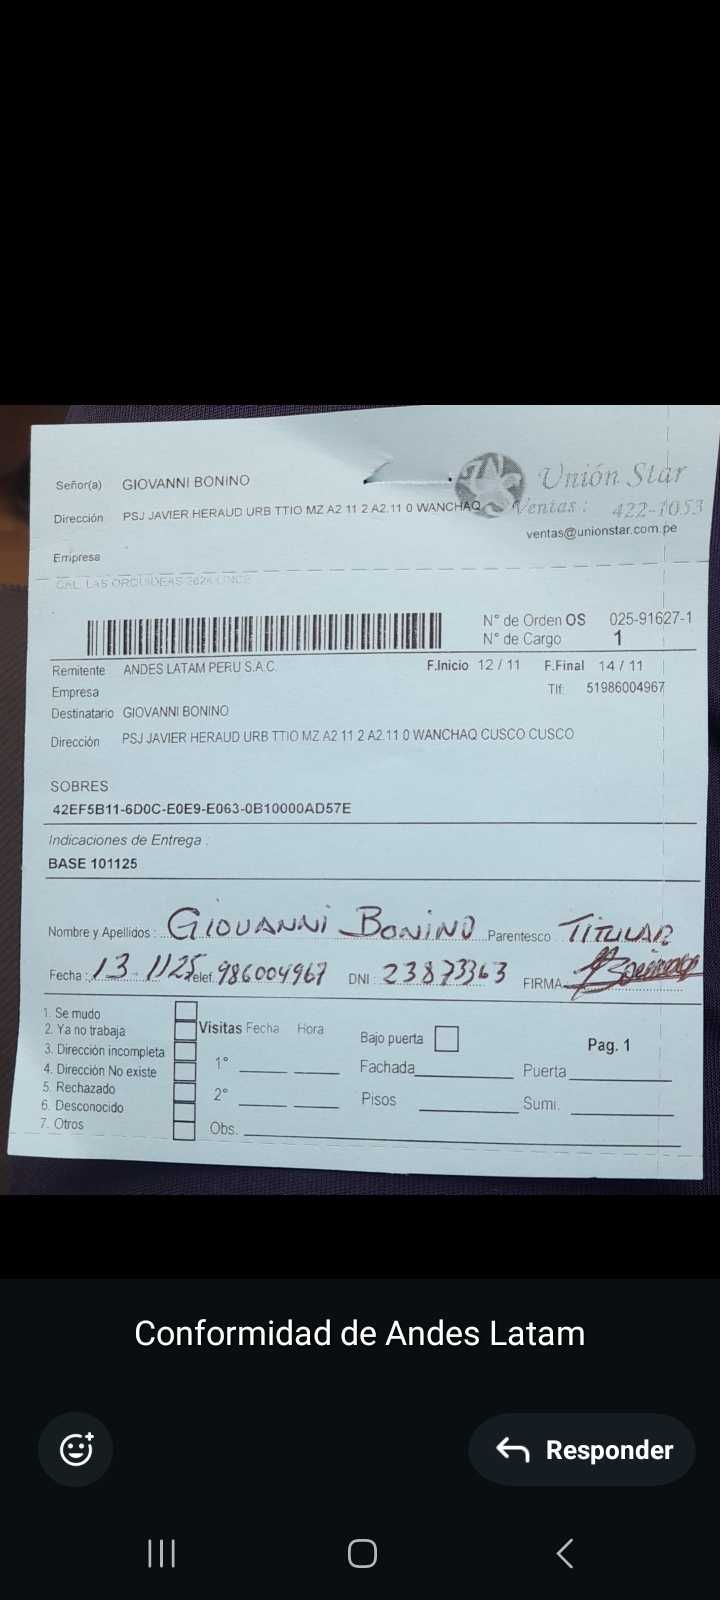 Señor(a) GIOVANNI BONINO
Unión Star
Dirección PSJ JAVIER HERAUD URB TTIO MZ A2 11 2 A2.11 0 WANCHAQ
Ventas : 422-1053
ventas@unionstar.com.pe
Empresa
CAL. LAS ORQUIDEAS 2624 LINCE
N° de Orden OS 025-91627-1
N° de Cargo 1
Remitente ANDES LATAM PERU S.A.C. F.Inicio 12 / 11 F.Final 14 / 11
Empresa Tlf: 51986004967
Destinatario GIOVANNI BONINO
Dirección PSJ JAVIER HERAUD URB TTIO MZ A2 11 2 A2.11 0 WANCHAQ CUSCO CUSCO
SOBRES
42EF5B11-6D0C-E0E9-E063-0B10000AD57E
Indicaciones de Entrega :
BASE 101125
Nombre y Apellidos : GIOVANNI BONINO Parentesco TITULAR
Fecha : 13-1125 Telef. 986004967 DNI : 23873363 FIRMA
1. Se mudo
2. Ya no trabaja
3. Dirección incompleta
4. Dirección No existe
5. Rechazado
6. Desconocido
7. Otros
Visitas Fecha Hora
1°
2°
Obs.
Bajo puerta
Pag. 1
Fachada Puerta
Pisos Sumi.
Conformidad de Andes Latam
Responder